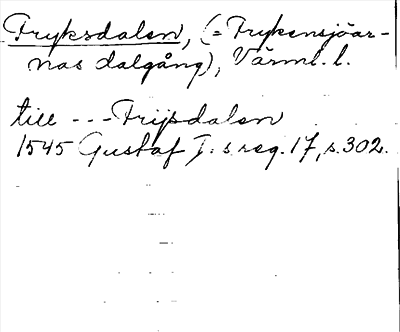 Fryksdalen, (= Frykensjöar-
nas dalgång), Värml. l.
till --- Frijsdalen
1545 Gustaf I:s reg. 17, s. 302.